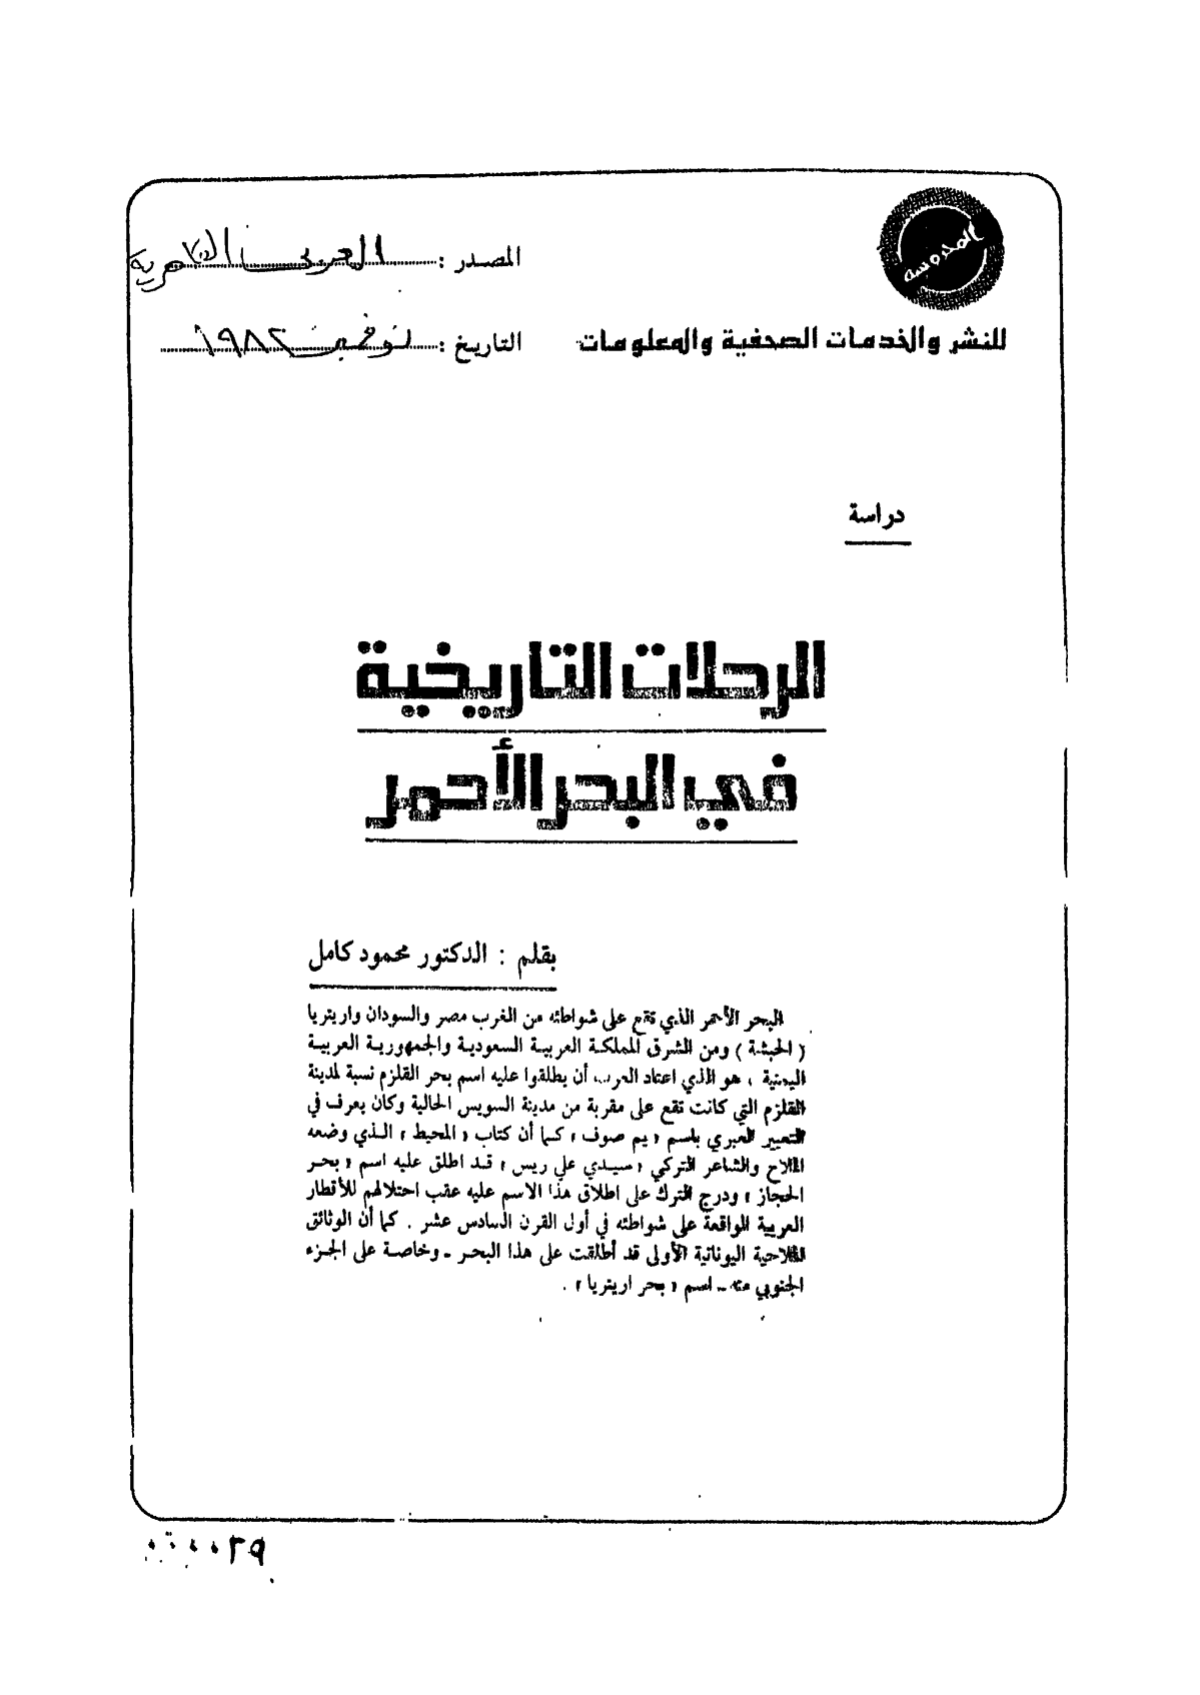 المحروسة
المصدر : العربى القاهرية
للنشر والخدمات الصحفية والمعلومات
التاريخ : نوفمبر ١٩٨٢
دراسة
الرحلات التاريخية
في البحر الأحمر
بقلم : الدكتور محمود كامل
البحر الأحمر الذي تقع على شواطئه من الغرب مصر والسودان واريتريا
( الحبشة ) ومن الشرق المملكة العربية السعودية والجمهورية العربية
اليمنية ، هو الذي اعتاد العرب أن يطلقوا عليه اسم بحر القلزم نسبة لمدينة
القلزم التي كانت تقع على مقربة من مدينة السويس الحالية وكان يعرف في
التعبير العبري باسم « يم صوف » كما أن كتاب « المحيط » الذي وضعه
الملاح والشاعر التركي « سيدي علي ريس » قد اطلق عليه اسم « بحر
الحجاز » ودرج الترك على اطلاق هذا الاسم عليه عقب احتلالهم للأقطار
العربية الواقعة على شواطئه في أول القرن السادس عشر . كما أن الوثائق
الملاحية اليونانية الأولى قد أطلقت على هذا البحر ـ وخاصة على الجزء
الجنوبي منه ـ اسم « بحر اريتريا » .
٠٠٠٠٢٩